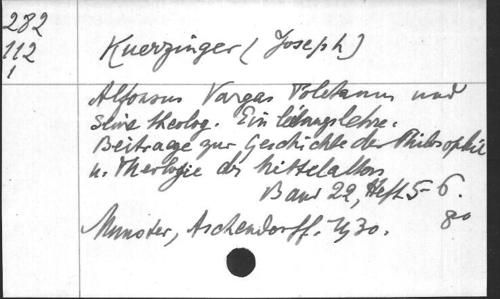 282
112
1
Kuerzinger (Joseph)
Alfonsus Vargas Toletanus und
seine theolog. Einleitungslehre.
Beitrage zur Geschichte der Philosophie
u. Theologie des Mittelalters
Band 22, Heft 5-6.
Munster, Aschendorff. 1930. 80